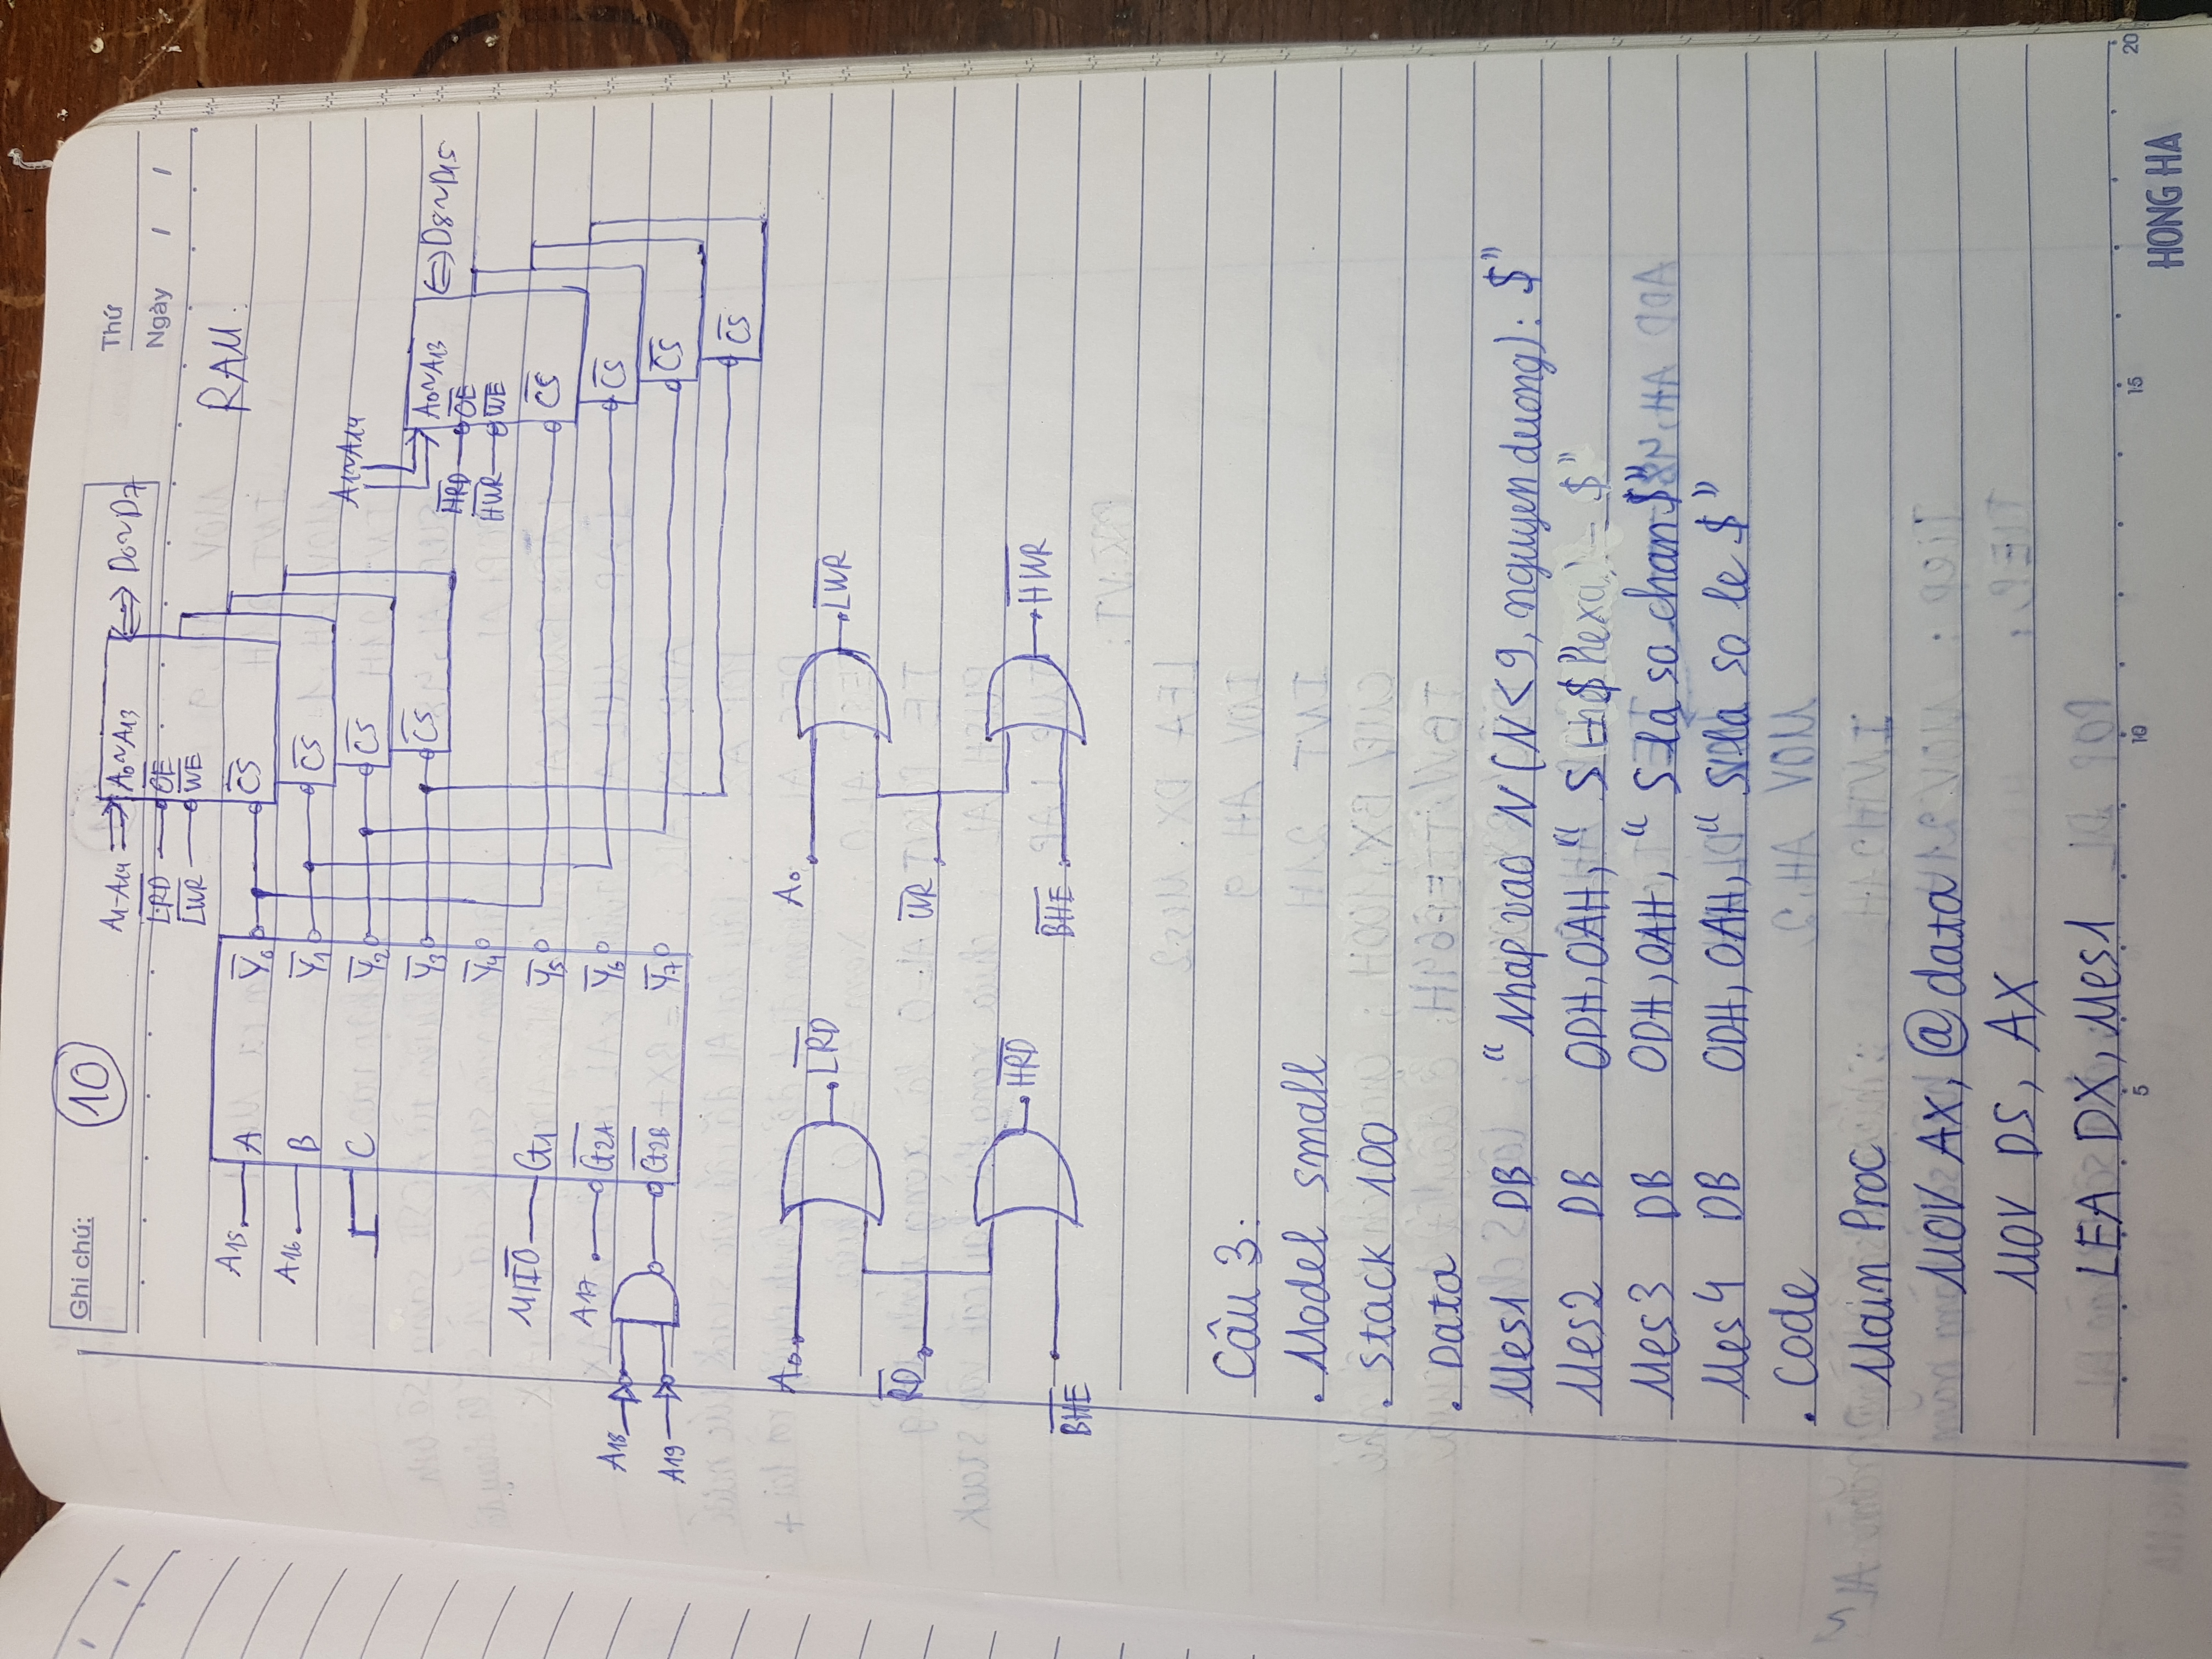 Ghi chú:
10
Thứ
Ngày / /
A1-A14 A0~A13 D0~D7
LRD OE
LWR WE
RAM.
A15 A Y0 CS
A16 B Y1 CS
C Y2 CS
Y3 CS
Y4
M/IO G1 Y5
A17 G2A Y6
A18
A19 G2B Y7
A1~A14
A0~A13 D8~D15
HRD OE
HWR WE
CS
CS
CS
CS
A0 LRD A0 LWR
RD WR
HRD HWR
BHE BHE
Câu 3:
. Model small
. Stack 100
. Data
Mes1 DB “Nhap vao N (N<9, nguyen duong): $”
Mes2 DB 0DH, 0AH, “S = $”
Mes3 DB 0DH, 0AH, “S la so chan $”
Mes4 DB 0DH, 0AH, “S la so le $”
. Code
Main Proc
MOV AX, @data
MOV DS, AX
LEA DX, Mes1
5 10 15 20
HONG HA